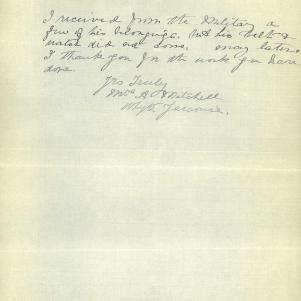 I received from the Military a
few of his belongings. but his belt &
watch did not come.
I thank you for the work you have
done.
Yrs Truly
Mrs A Mitchell